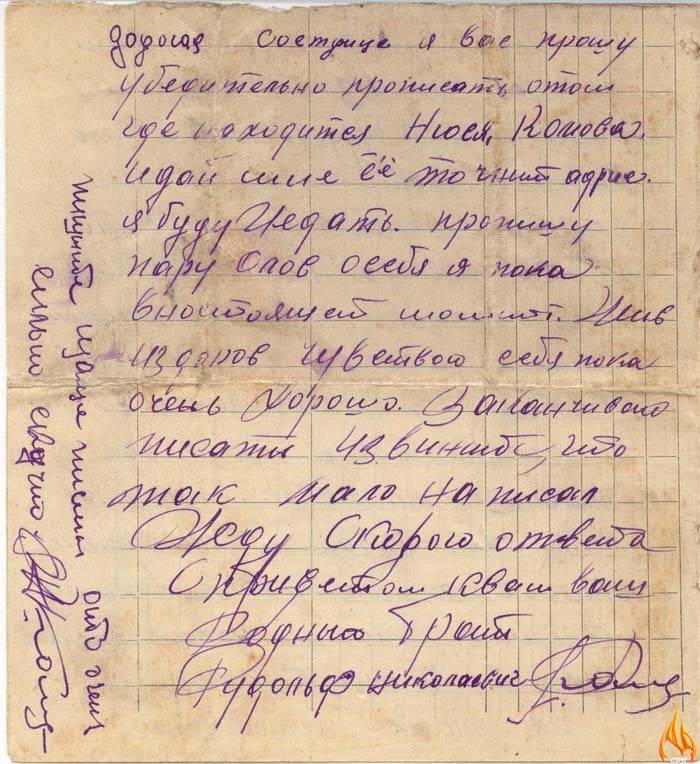 дорогая состуица я вас прошу
убедительно прописать отом
где находится Нюся, Комова.
идай мне её точний адрис.
я буду Жедать. пропишу
пару Слов осебя я пока
внастоящей момент. Жив
издоров чувствою себя пока
очень Хорошо. Заканчиваю
писать извините, что
так мало написал
Жеду Скорого ответа
Сприветом квам ваш
Родный Брат
Рудольф николаевич
пишите чаще письма ото очен
сильно скучно